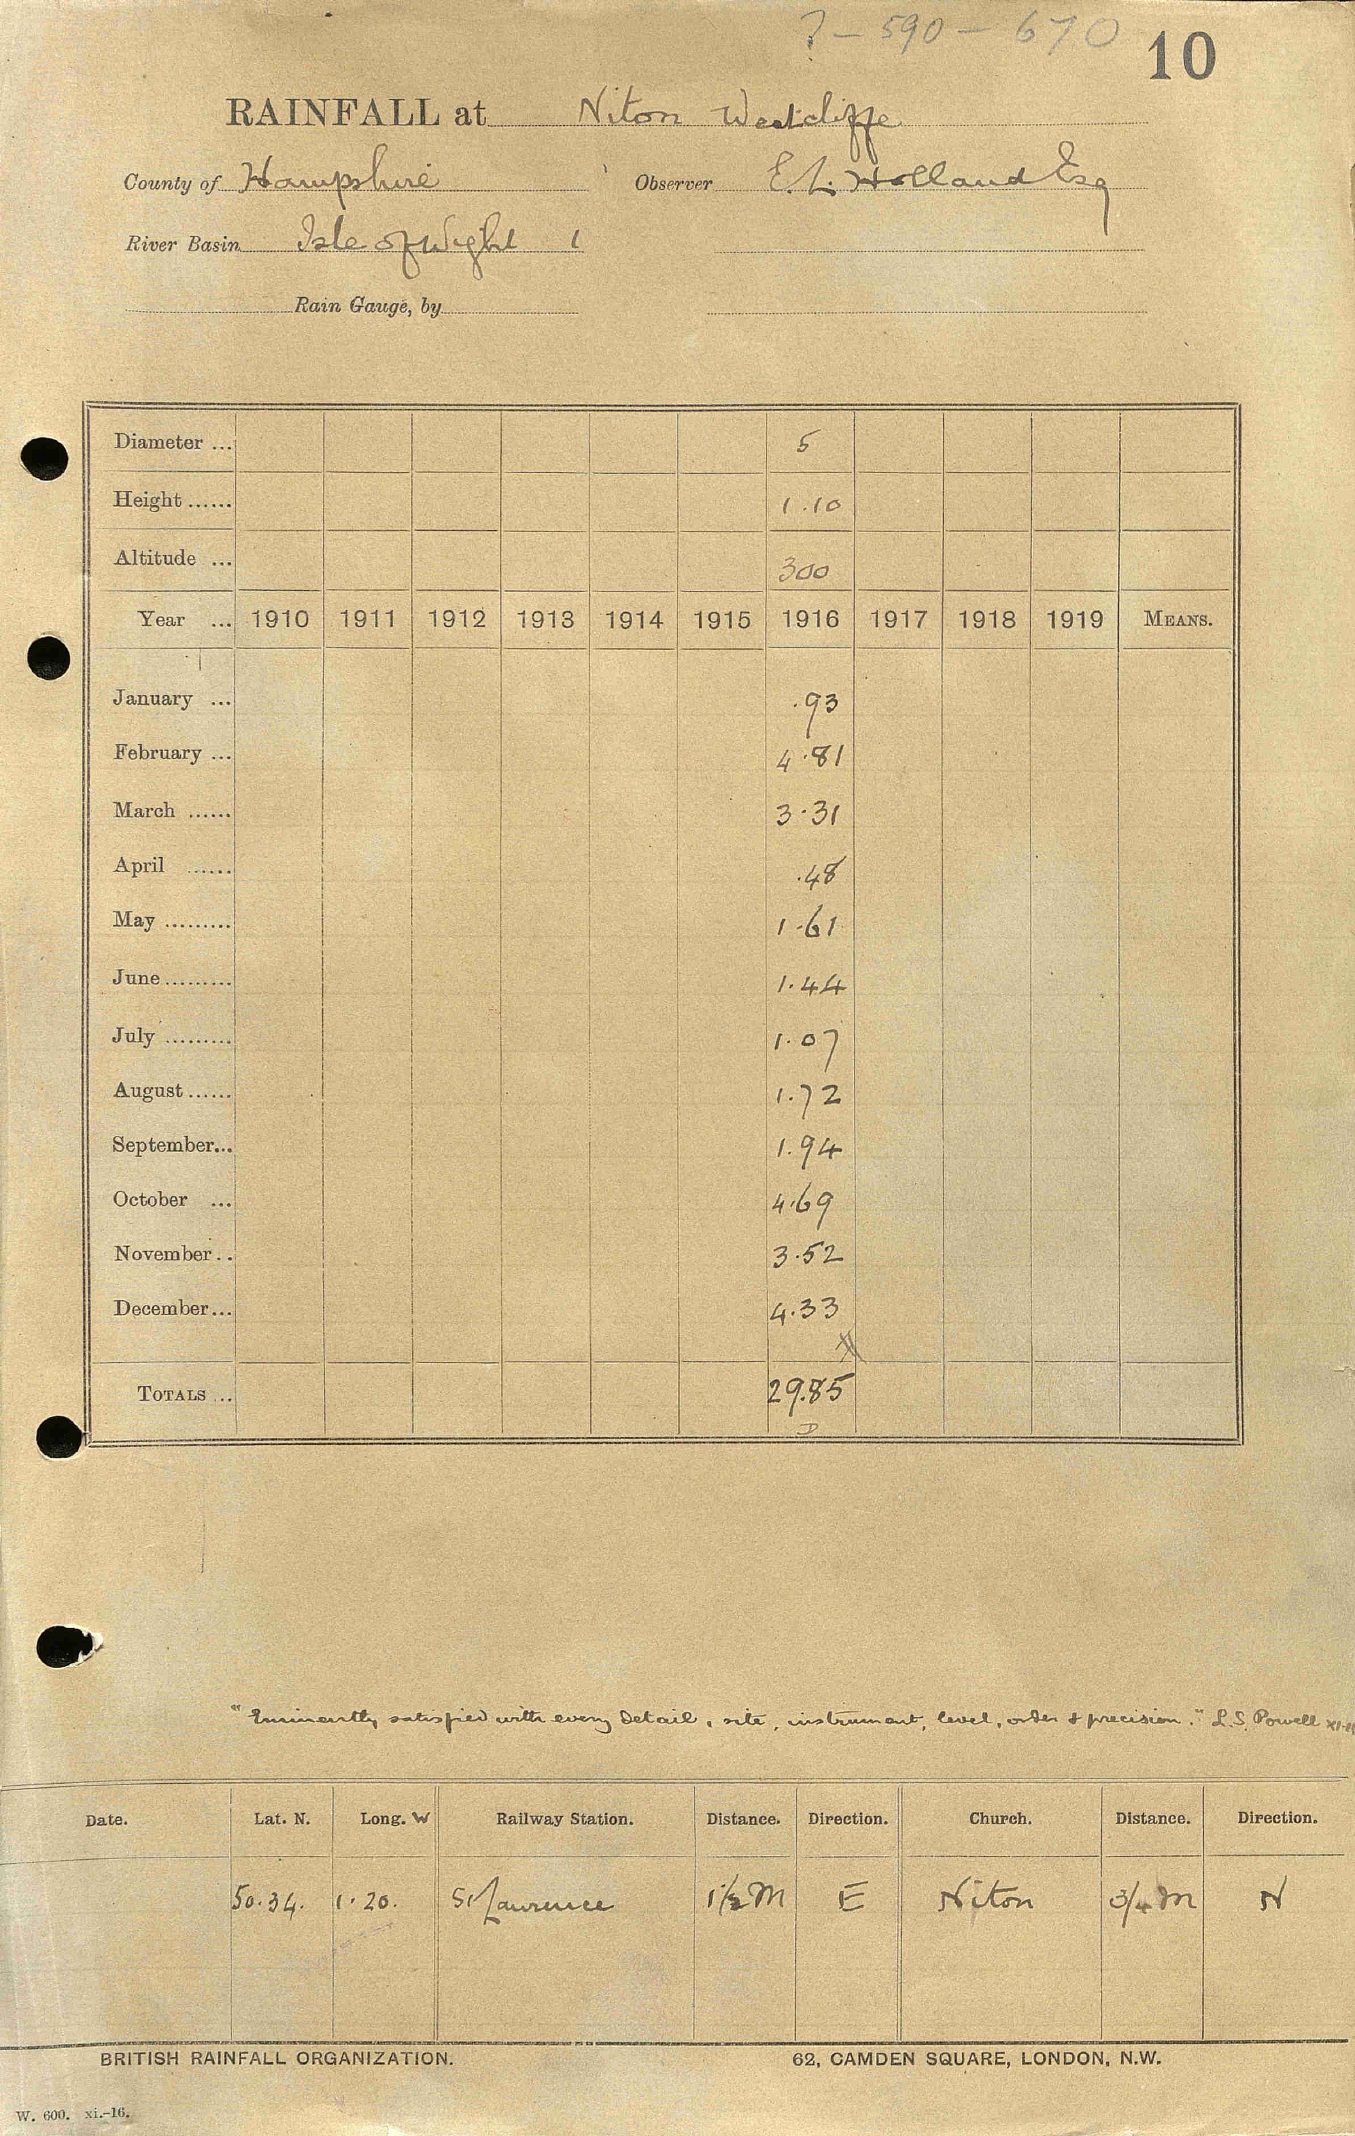 ? - 590 - 670
10
RAINFALL at Niton Westcliffe
County of Hampshire Observer E. L. Holland Esq
River Basin Isle of Wight 1
Rain Gauge, by
Diameter ... 5
Height ...... 1.10
Altitude ... 300
Year ... 1910 1911 1912 1913 1914 1915 1916 1917 1918 1919 MEANS.
January ... .93
February ... 4.81
March ...... 3.31
April ...... .48
May ......... 1.61
June ......... 1.44
July ......... 1.07
August ...... 1.72
September... 1.94
October ... 4.69
November .. 3.52
December ... 4.33
TOTALS ... 29.85
D
"Eminently satisfied with every detail, site, instrument, level, order & precision." L.S. Powell
Date. Lat. N. Long. W Railway Station. Distance. Direction. Church. Distance. Direction.
50.34. 1.20. St Lawrence 1½ M E Niton 3/4 M N
BRITISH RAINFALL ORGANIZATION. 62, CAMDEN SQUARE, LONDON, N.W.
W. 600. xi.-16.